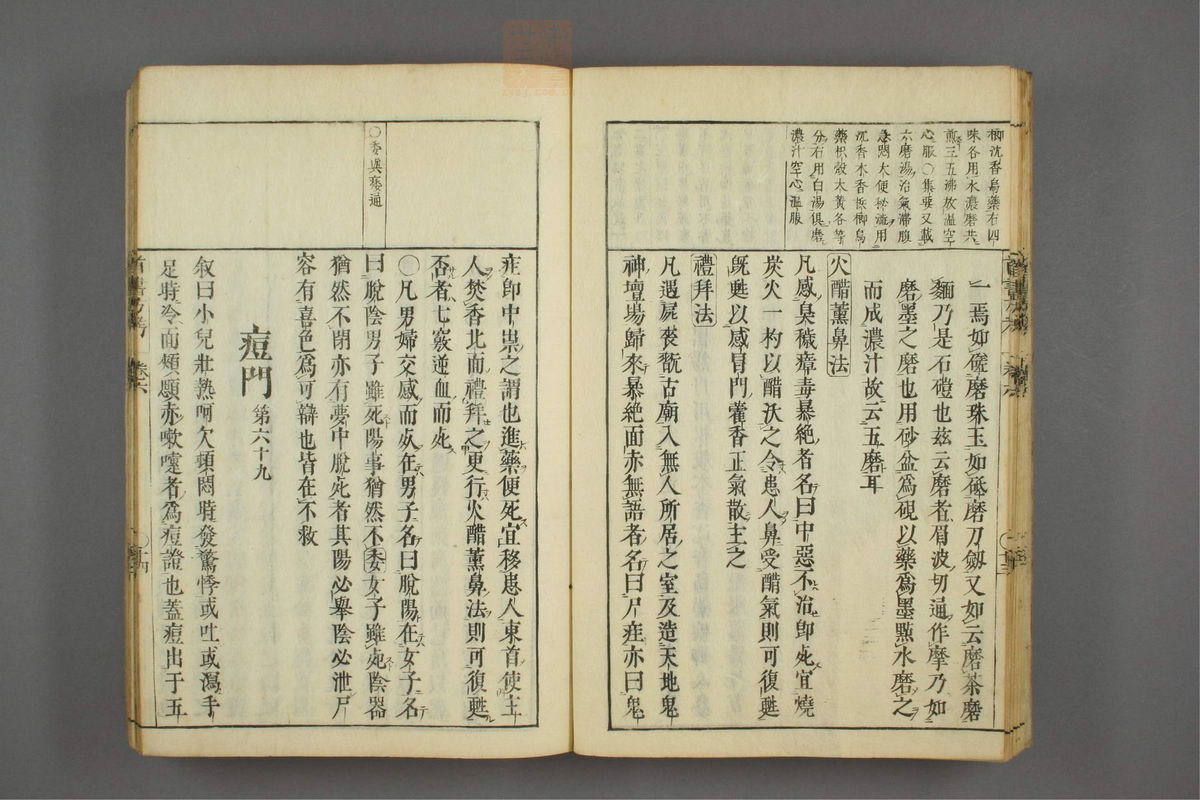 榔沈香烏藥右四
味各用水濃磨共
煎三五沸放温空
心服〇集要又載
六磨湯治氣滯腹
急悶大便秘澁用
沉香木香梹榔烏
藥枳殼大黃各等
分右用白湯俱磨
濃汁空心温服
一焉如磋磨珠玉如砥磨刀劔又如云磨茶磨
麵乃是石磑也兹云磨者眉波切通作摩乃如
磨墨之磨也用砂盆爲硯以藥爲墨㸃水磨之
而成濃汁故云五磨耳
火醋薰鼻法
凡感臭穢瘴毒暴絶者名曰中惡不治卽死宜燒
炭火一杓以醋沃之令患人鼻受醋氣則可復甦
旣甦以感冒門藿香正氣散主之
禮拜法
凡遇屍喪翫古廟入無人所居之室及造天地鬼
神壇場歸來暴絶面赤無語者名曰尸疰亦曰鬼
卷六
〇委與痿通
疰卽中祟之謂也進藥便死宜移患人東首使主
人焚香北面禮拜之更行火醋薰鼻法則可復甦
否者七竅迸血而死
〇凡男婦交感而死在男子名曰脫陽在女子名
曰脫陰男子雖死陽事猶然不委女子雖死陰器
猶然不閉亦有夢中脫死者其陽必舉陰必泄尸
容有喜色爲可辯也皆在不救
痘門 第六十九
叙曰小兒壯熱呵欠頓悶時發驚悸或吐或瀉手
足時冷面頰顋赤嗽嚏者爲痘證也蓋痘出于五
卷六
〇十四